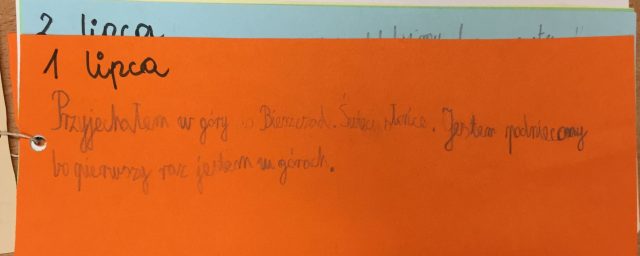 2 lipca
1 lipca
Przyjechałem w góry w Bieszczad. Świeci słońce. Jestem podniecony
bo pierwszy raz jestem w górach.